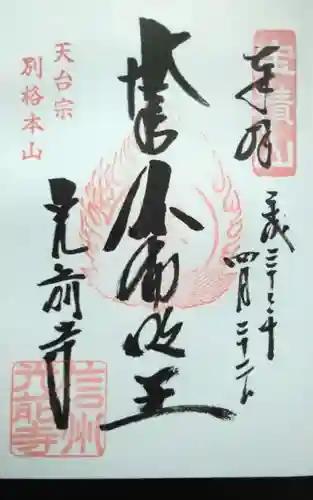 寳積山
奉拝
平成
四月二十二日
大聖不動明王
天台宗
別格本山
光前寺
信州
光前寺